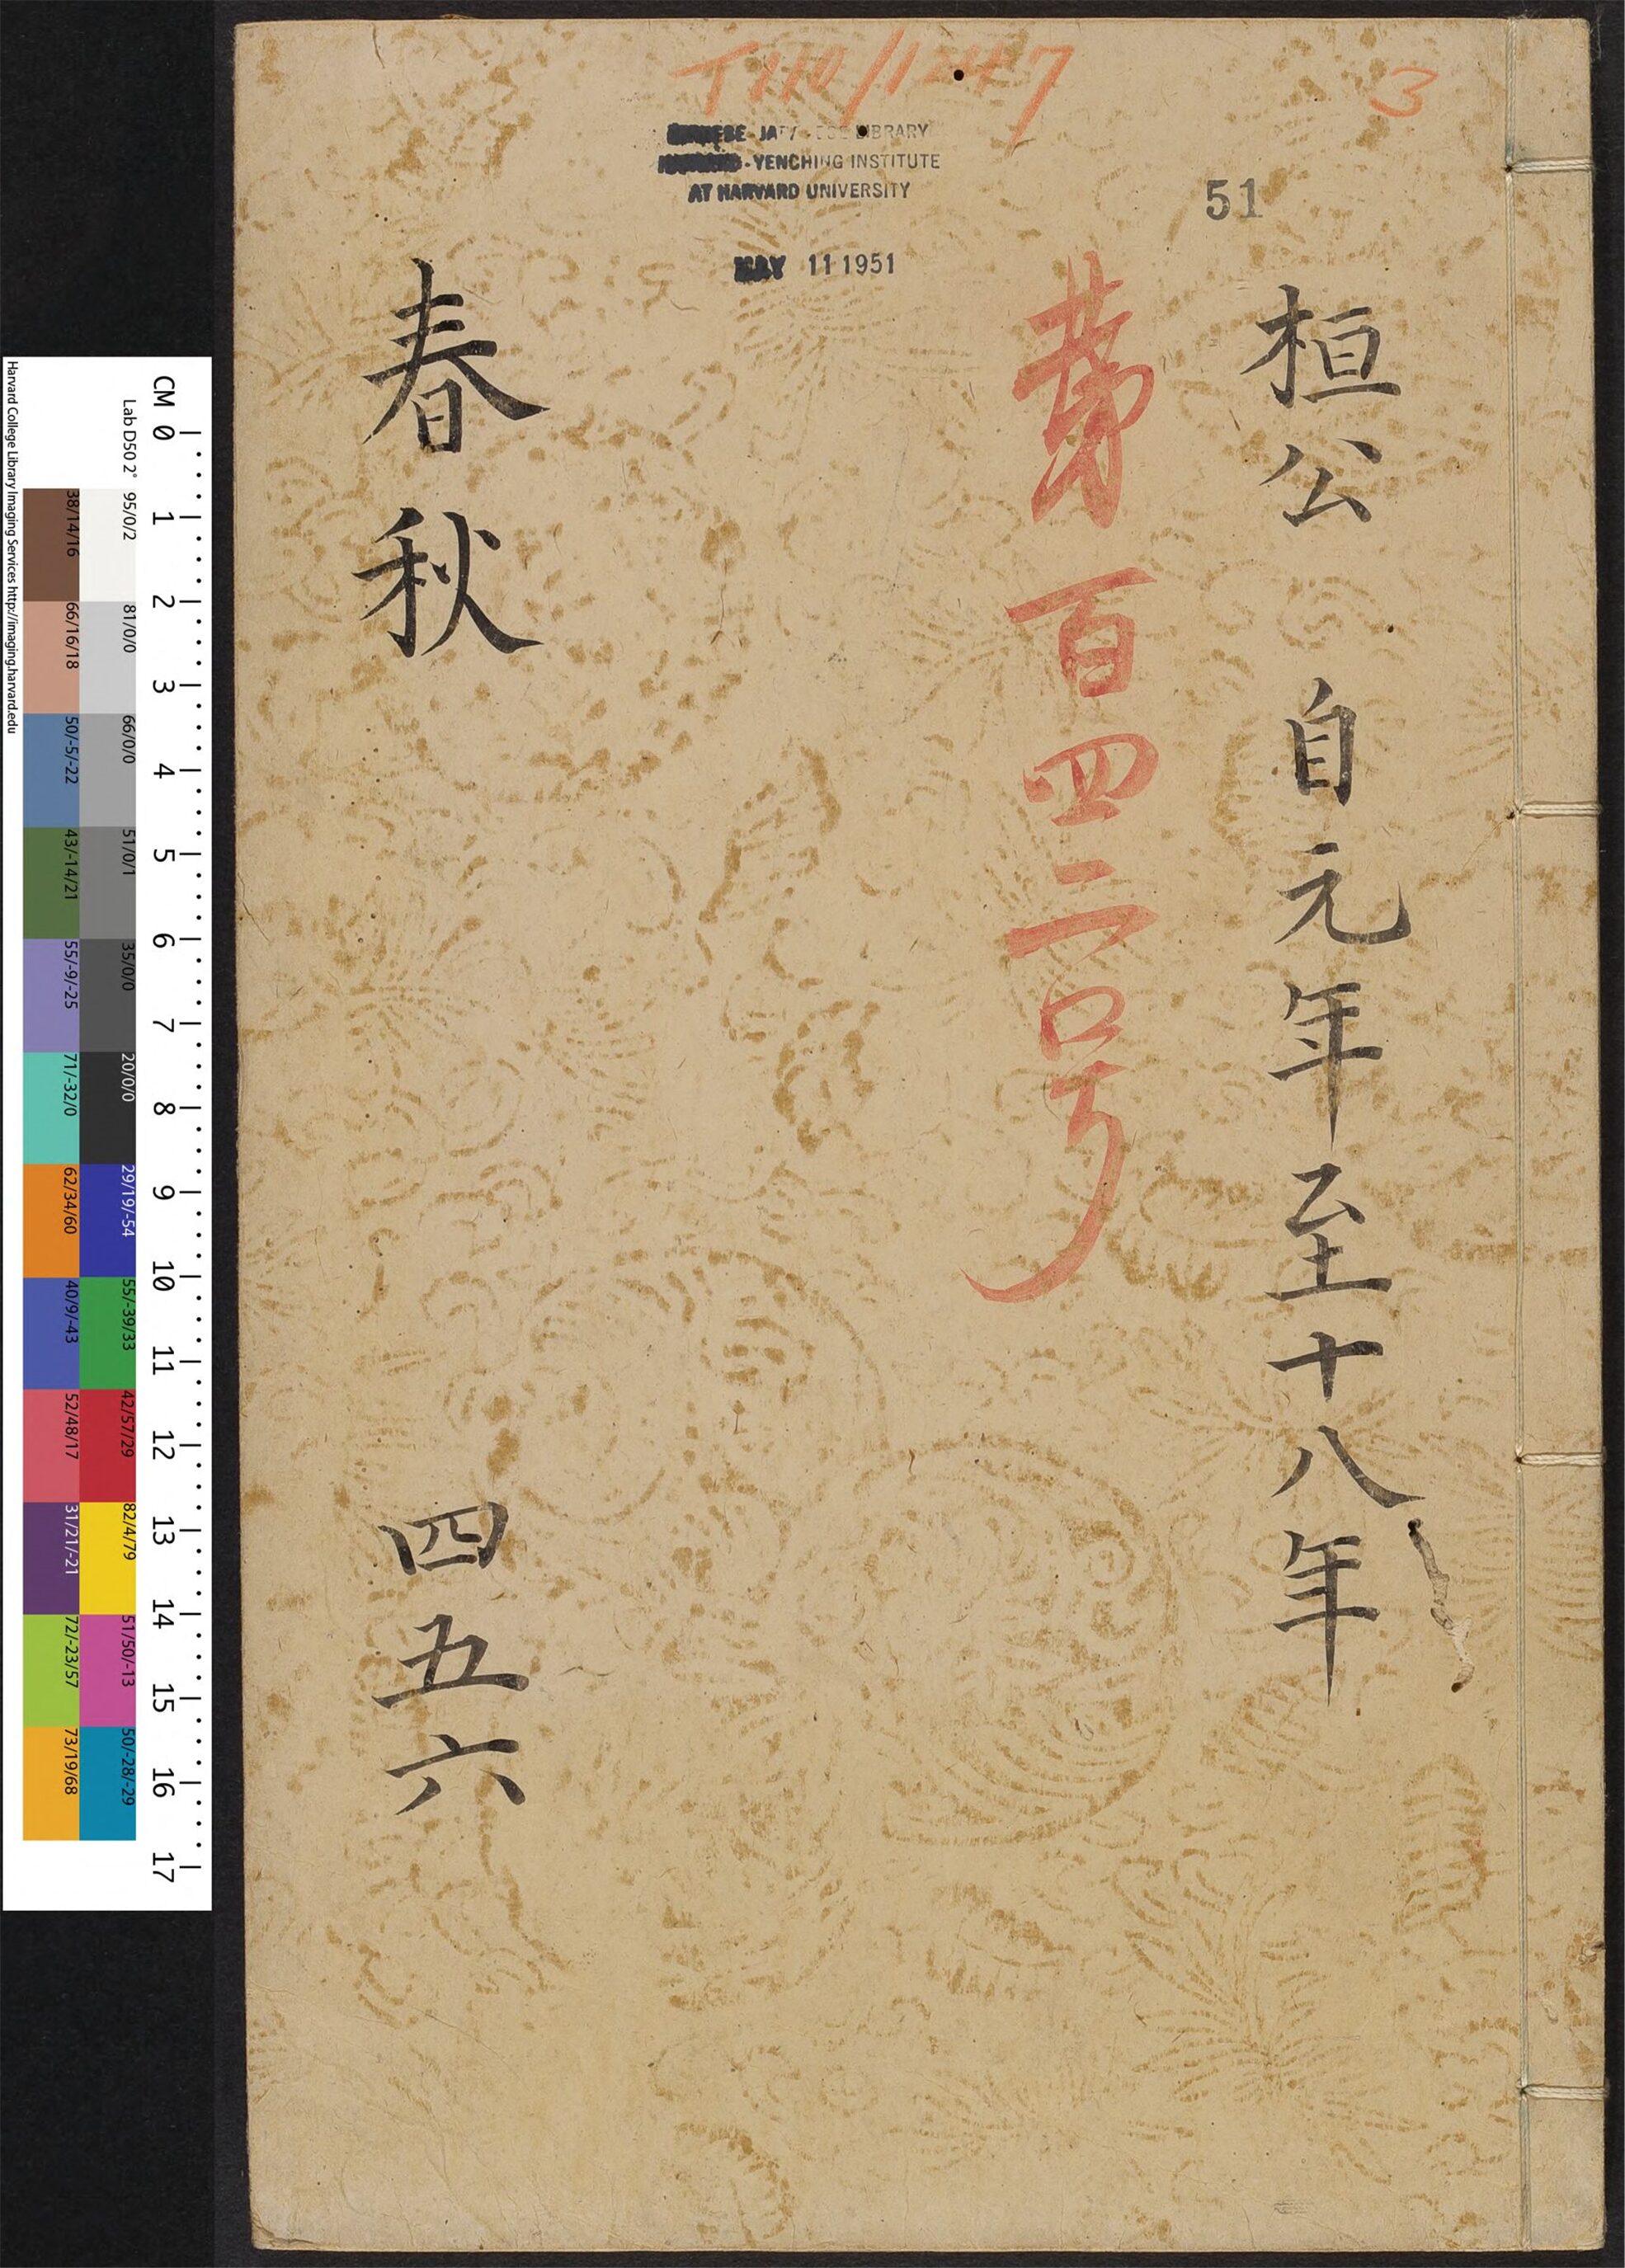 T110/1247
3
CHINESE-JAPANESE LIBRARY
HARVARD-YENCHING INSTITUTE
AT HARVARD UNIVERSITY
51
MAY 11 1951
桓公 自元年至十八年
第百四二号
春秋 四五六
CM 0 1 2 3 4 5 6 7 8 9 10 11 12 13 14 15 16 17
Lab D50 2° 95/0/2 81/0/0 66/0/0 51/0/1 35/0/0 20/0/0 29/19/-54 55/-39/33 42/57/29 82/4/79 51/50/-13 50/-28/-29
38/14/16 66/16/18 50/-5/-22 43/-14/21 55/-9/-25 71/-32/0 62/34/60 40/9/-43 52/48/17 31/21/-21 72/-23/57 73/19/68
Harvard College Library Imaging Services http://imaging.harvard.edu